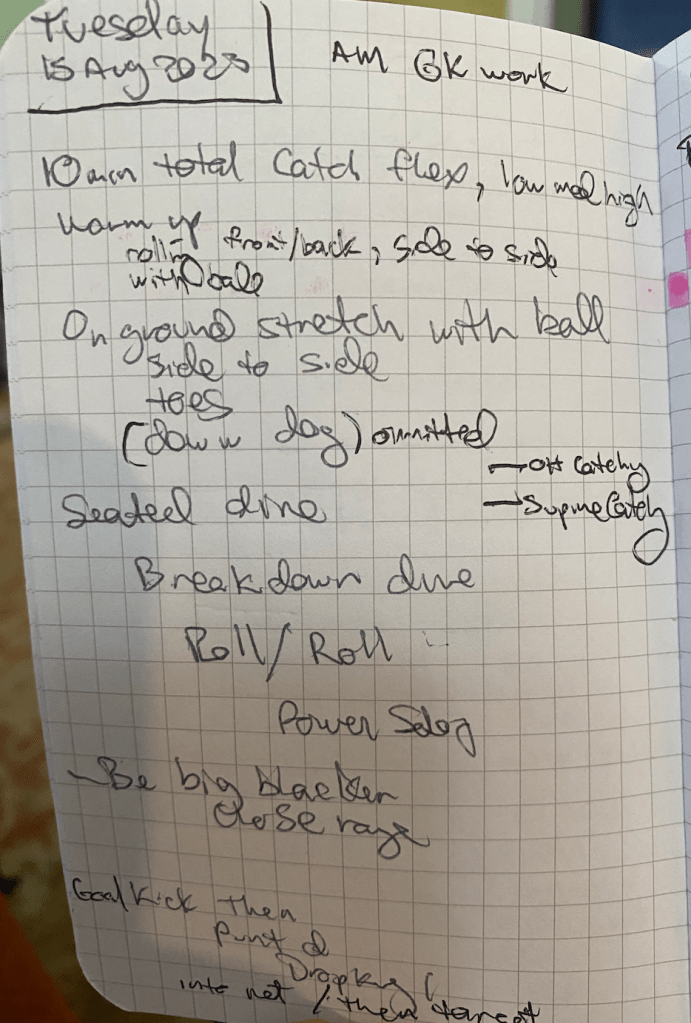 Tuesday
15 Aug 2023
AM GK work
10 min total Catch flex, low med high
Warm up
rolling front/back, side to side
with ball
On ground stretch with ball
side to side
toes
(down dog) ommitted
→ Supine Catch
Seated dive
Breakdown dive
Roll/Roll
Power
- Be big
close range
Goal Kick then
Punt &
Drop kick
into net / then target